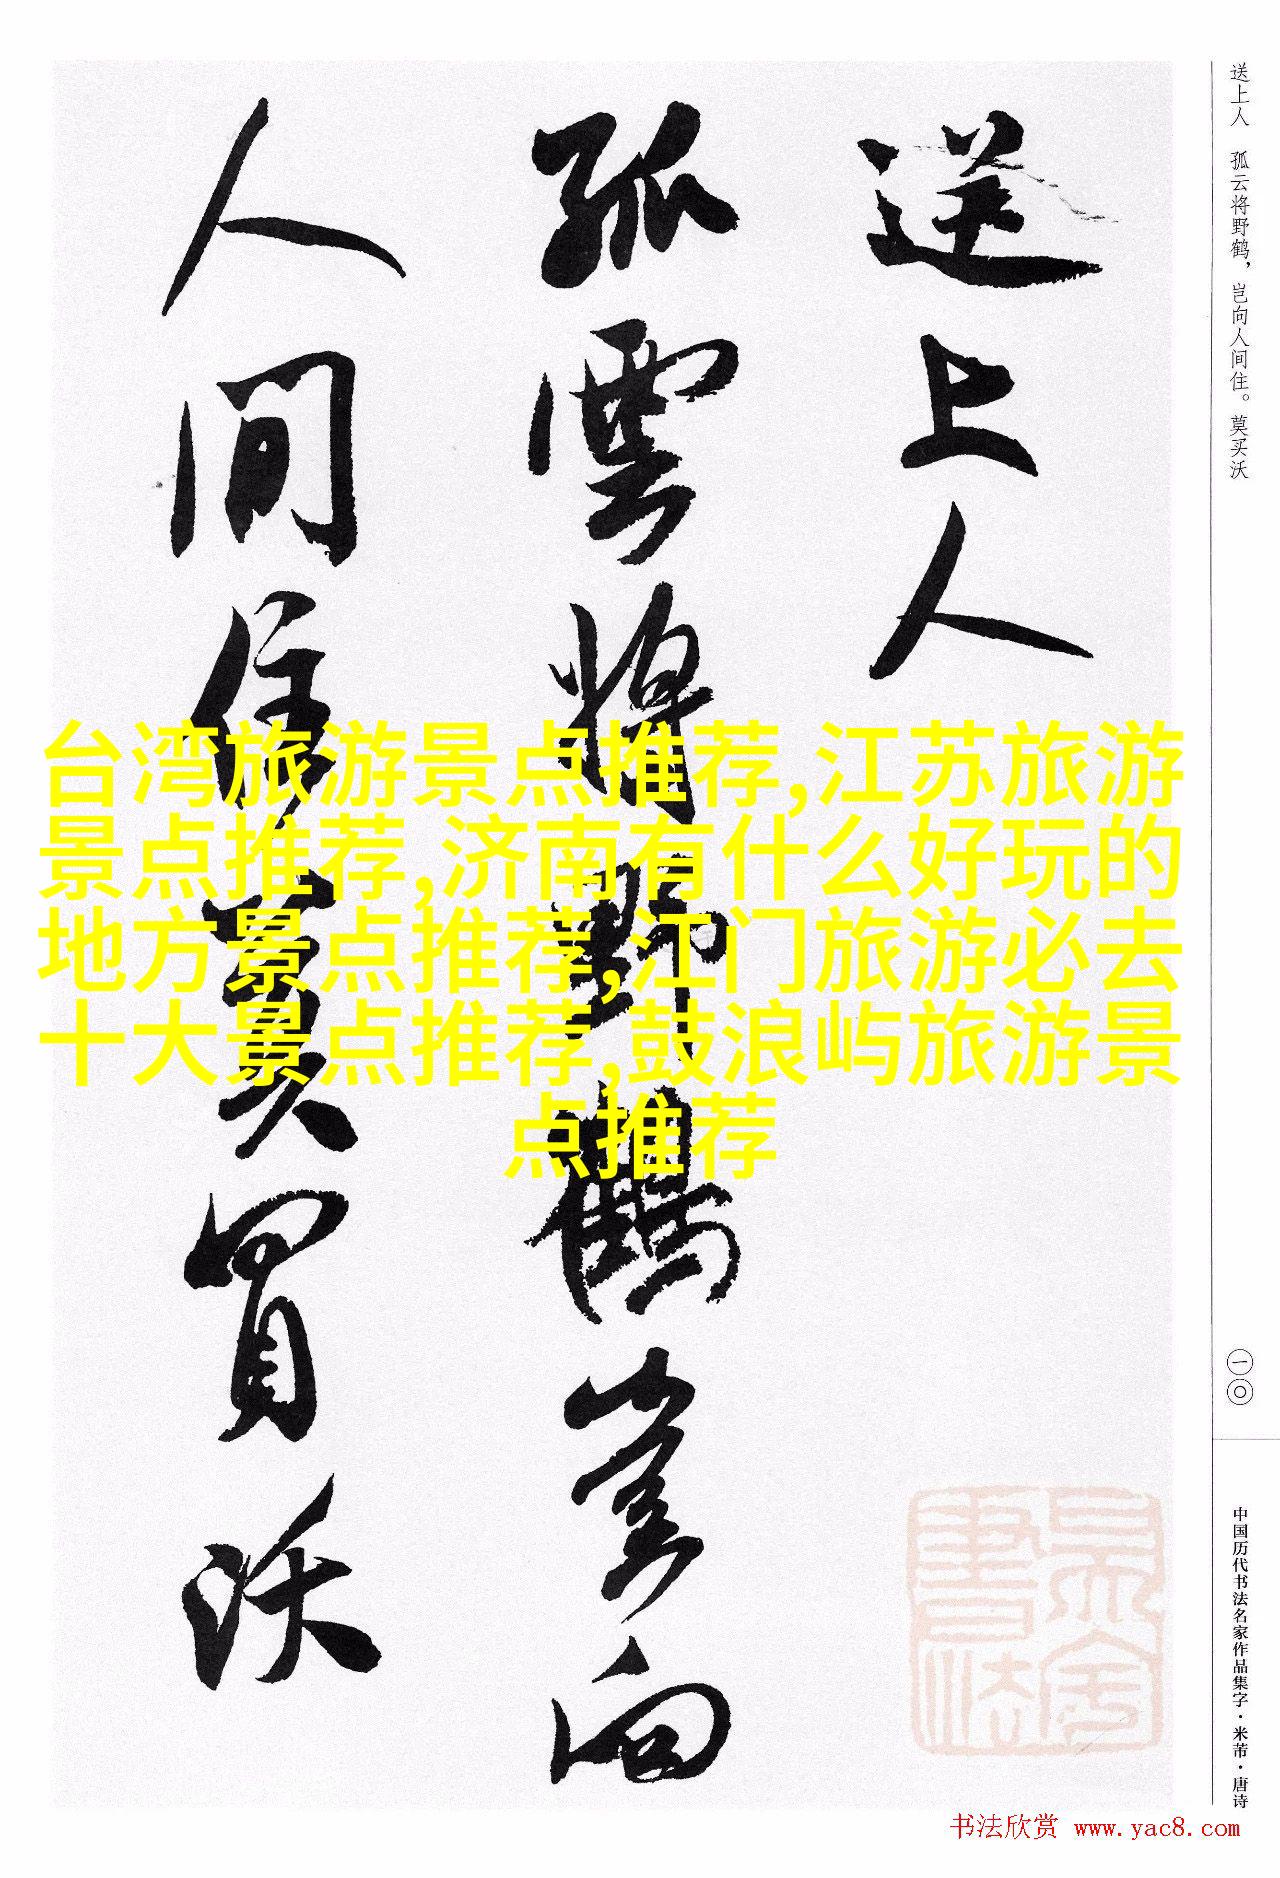 送上人
孤雲將野鶴豈向
人間住莫買沃
送上人 孤云将野鹤，岂向人间住。莫买沃
台湾旅游景点推荐,江苏旅游
景点推荐,济南有什么好玩的
地方景点推荐,江门旅游必去
十大景点推荐,鼓浪屿旅游景
点推荐
一〇
中国历代书法名家作品集字·米芾·唐诗
书法欣赏 www.yac8.com